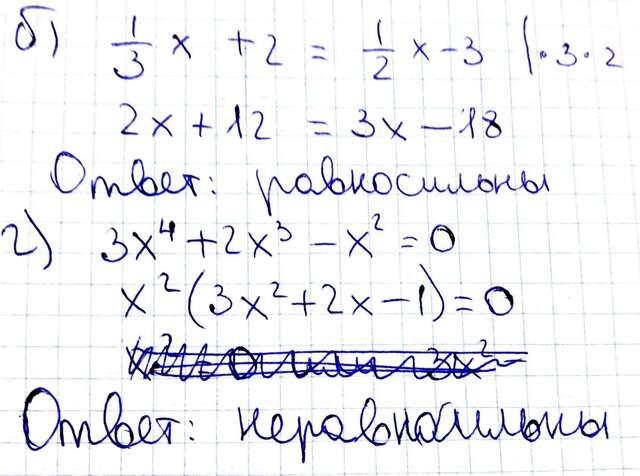 б) 1/3 x + 2 = 1/2 x - 3 | · 3 · 2
2x + 12 = 3x - 18
Ответ: равносильны
г) 3x⁴ + 2x³ - x² = 0
x²(3x² + 2x - 1) = 0
Ответ: неравносильны